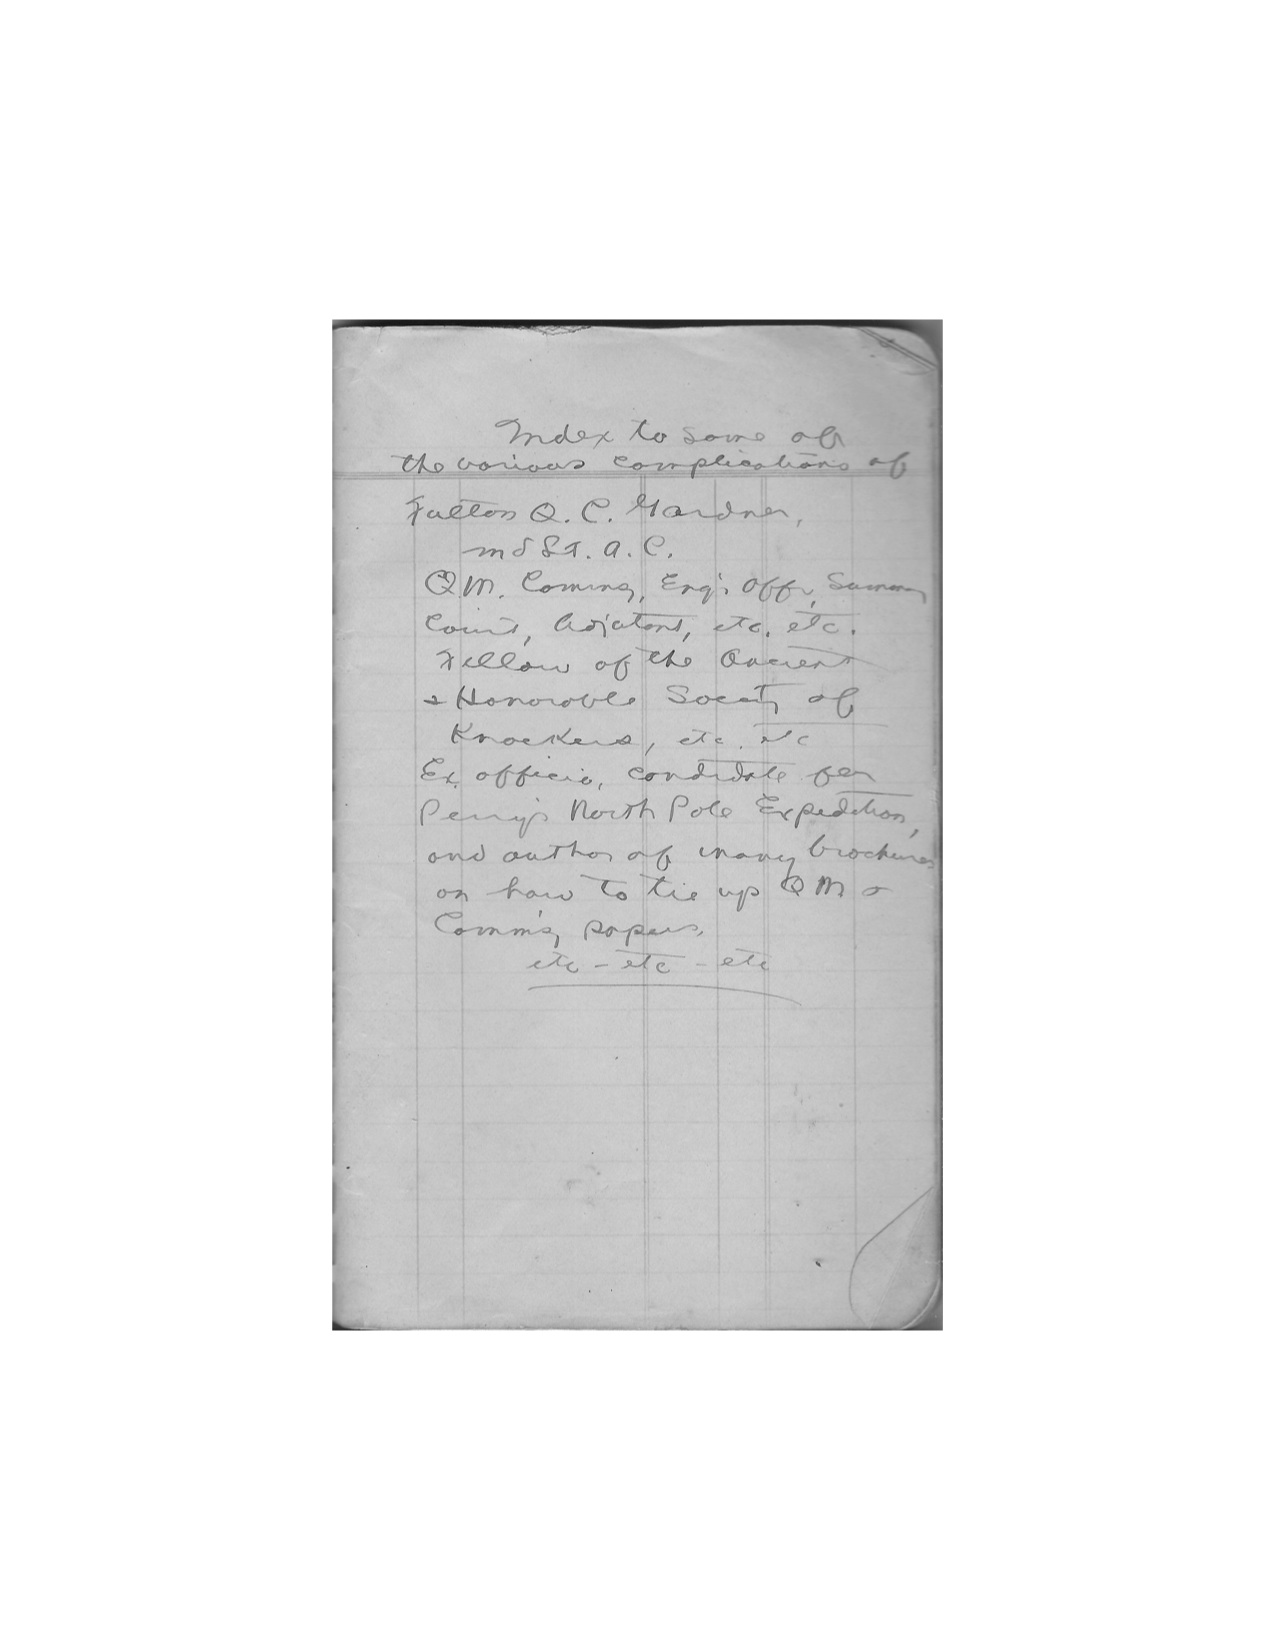 Index to some of
the various complications of
Fulton Q. C. Gardner,
A. C.
Q.M. Eng'r Offr, Summary
Court, etc. etc.
Fellow of the Ancient
& Honorable Society of
Knockers, etc. etc
Ex officio, candidate for
Perry's North Pole Expedition,
and author of many brochures
on how to tie up QM &
Comm'sy papers.
etc - etc - etc